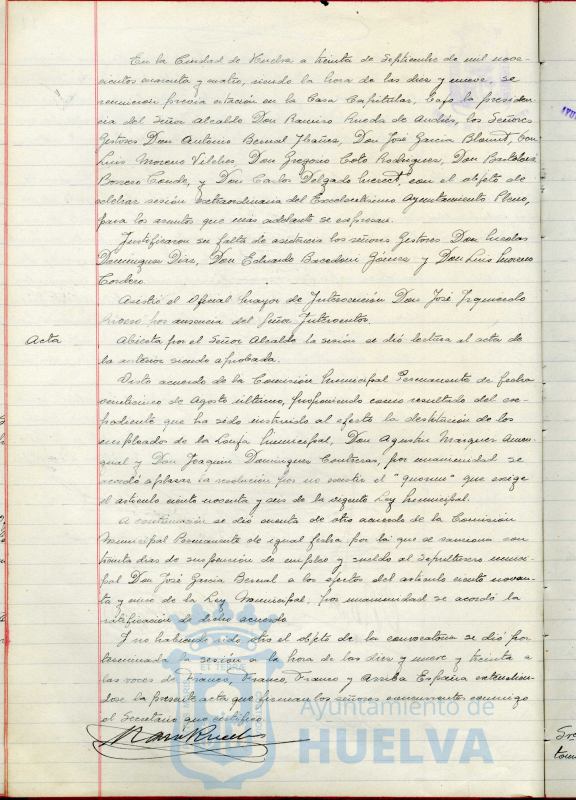 En la Ciudad de Huelva a treinta de Septiembre de mil nove-
cientos cuarenta y cuatro, siendo la hora de las diez y nueve, se
reunieron previa citación en la Casa Capitular, bajo la presiden-
cia del Señor Alcalde Don Ramiro Rueda de Andrés, los Señores
Gestores Don Antonio Bernal Ibáñez, Don José García Don
Luis Moreno Vilches, Don Gregorio Coto Rodríguez, Don Bartolomé
Borrero Conde, y Don Carlos Delgado con el objeto de
celebrar sesión extraordinaria del Excelentísimo Ayuntamiento Pleno,
para los asuntos que más adelante se expresan.
Justificaron su falta de asistencia los señores Gestores Don Nicolas
Dominguez Diaz, Don Eduardo Gómez y Don Luis Moreno
Cordero.
Asistió el Oficial Mayor de Intervención Don José Izquierdo
por ausencia del Señor Interventor.
Acta
Abierta por el Señor Alcalde la sesión se dió lectura al acta de
la anterior siendo aprobada.
Visto acuerdo de la Comisión Municipal Permanente de fecha
veinticinco de Agosto último, proponiendo como resultado del ex-
pediente que ha sido instruido al efecto la destitución de los
empleados de la Municipal, Don Agustin Marquez
y Don Joaquin Dominguez Contreras, por unanimidad se
acordó aplazar la resolución por no existir el "quorum" que exige
el artículo ciento noventa y seis de la vigente Ley Municipal.
A continuación se dió cuenta de otro acuerdo de la Comisión
Municipal Permanente de igual fecha por la que se sanciona con
treinta dias de suspensión de empleo y sueldo al Sepulturero munici-
pal Don José García Bernal a los efectos del artículo ciento noven-
ta y cinco de la Ley Municipal, por unanimidad se acordó la
ratificación de dicho acuerdo.
Y no habiendo sido otro el objeto de la convocatoria se dió por
terminada la sesión a la hora de las diez y nueve y treinta a
las voces de Franco, Franco, Franco y Arriba España extendien-
dose la presente acta que firman los señores concurrentes conmigo
el Secretario que certifico.
Ayuntamiento de
HUELVA